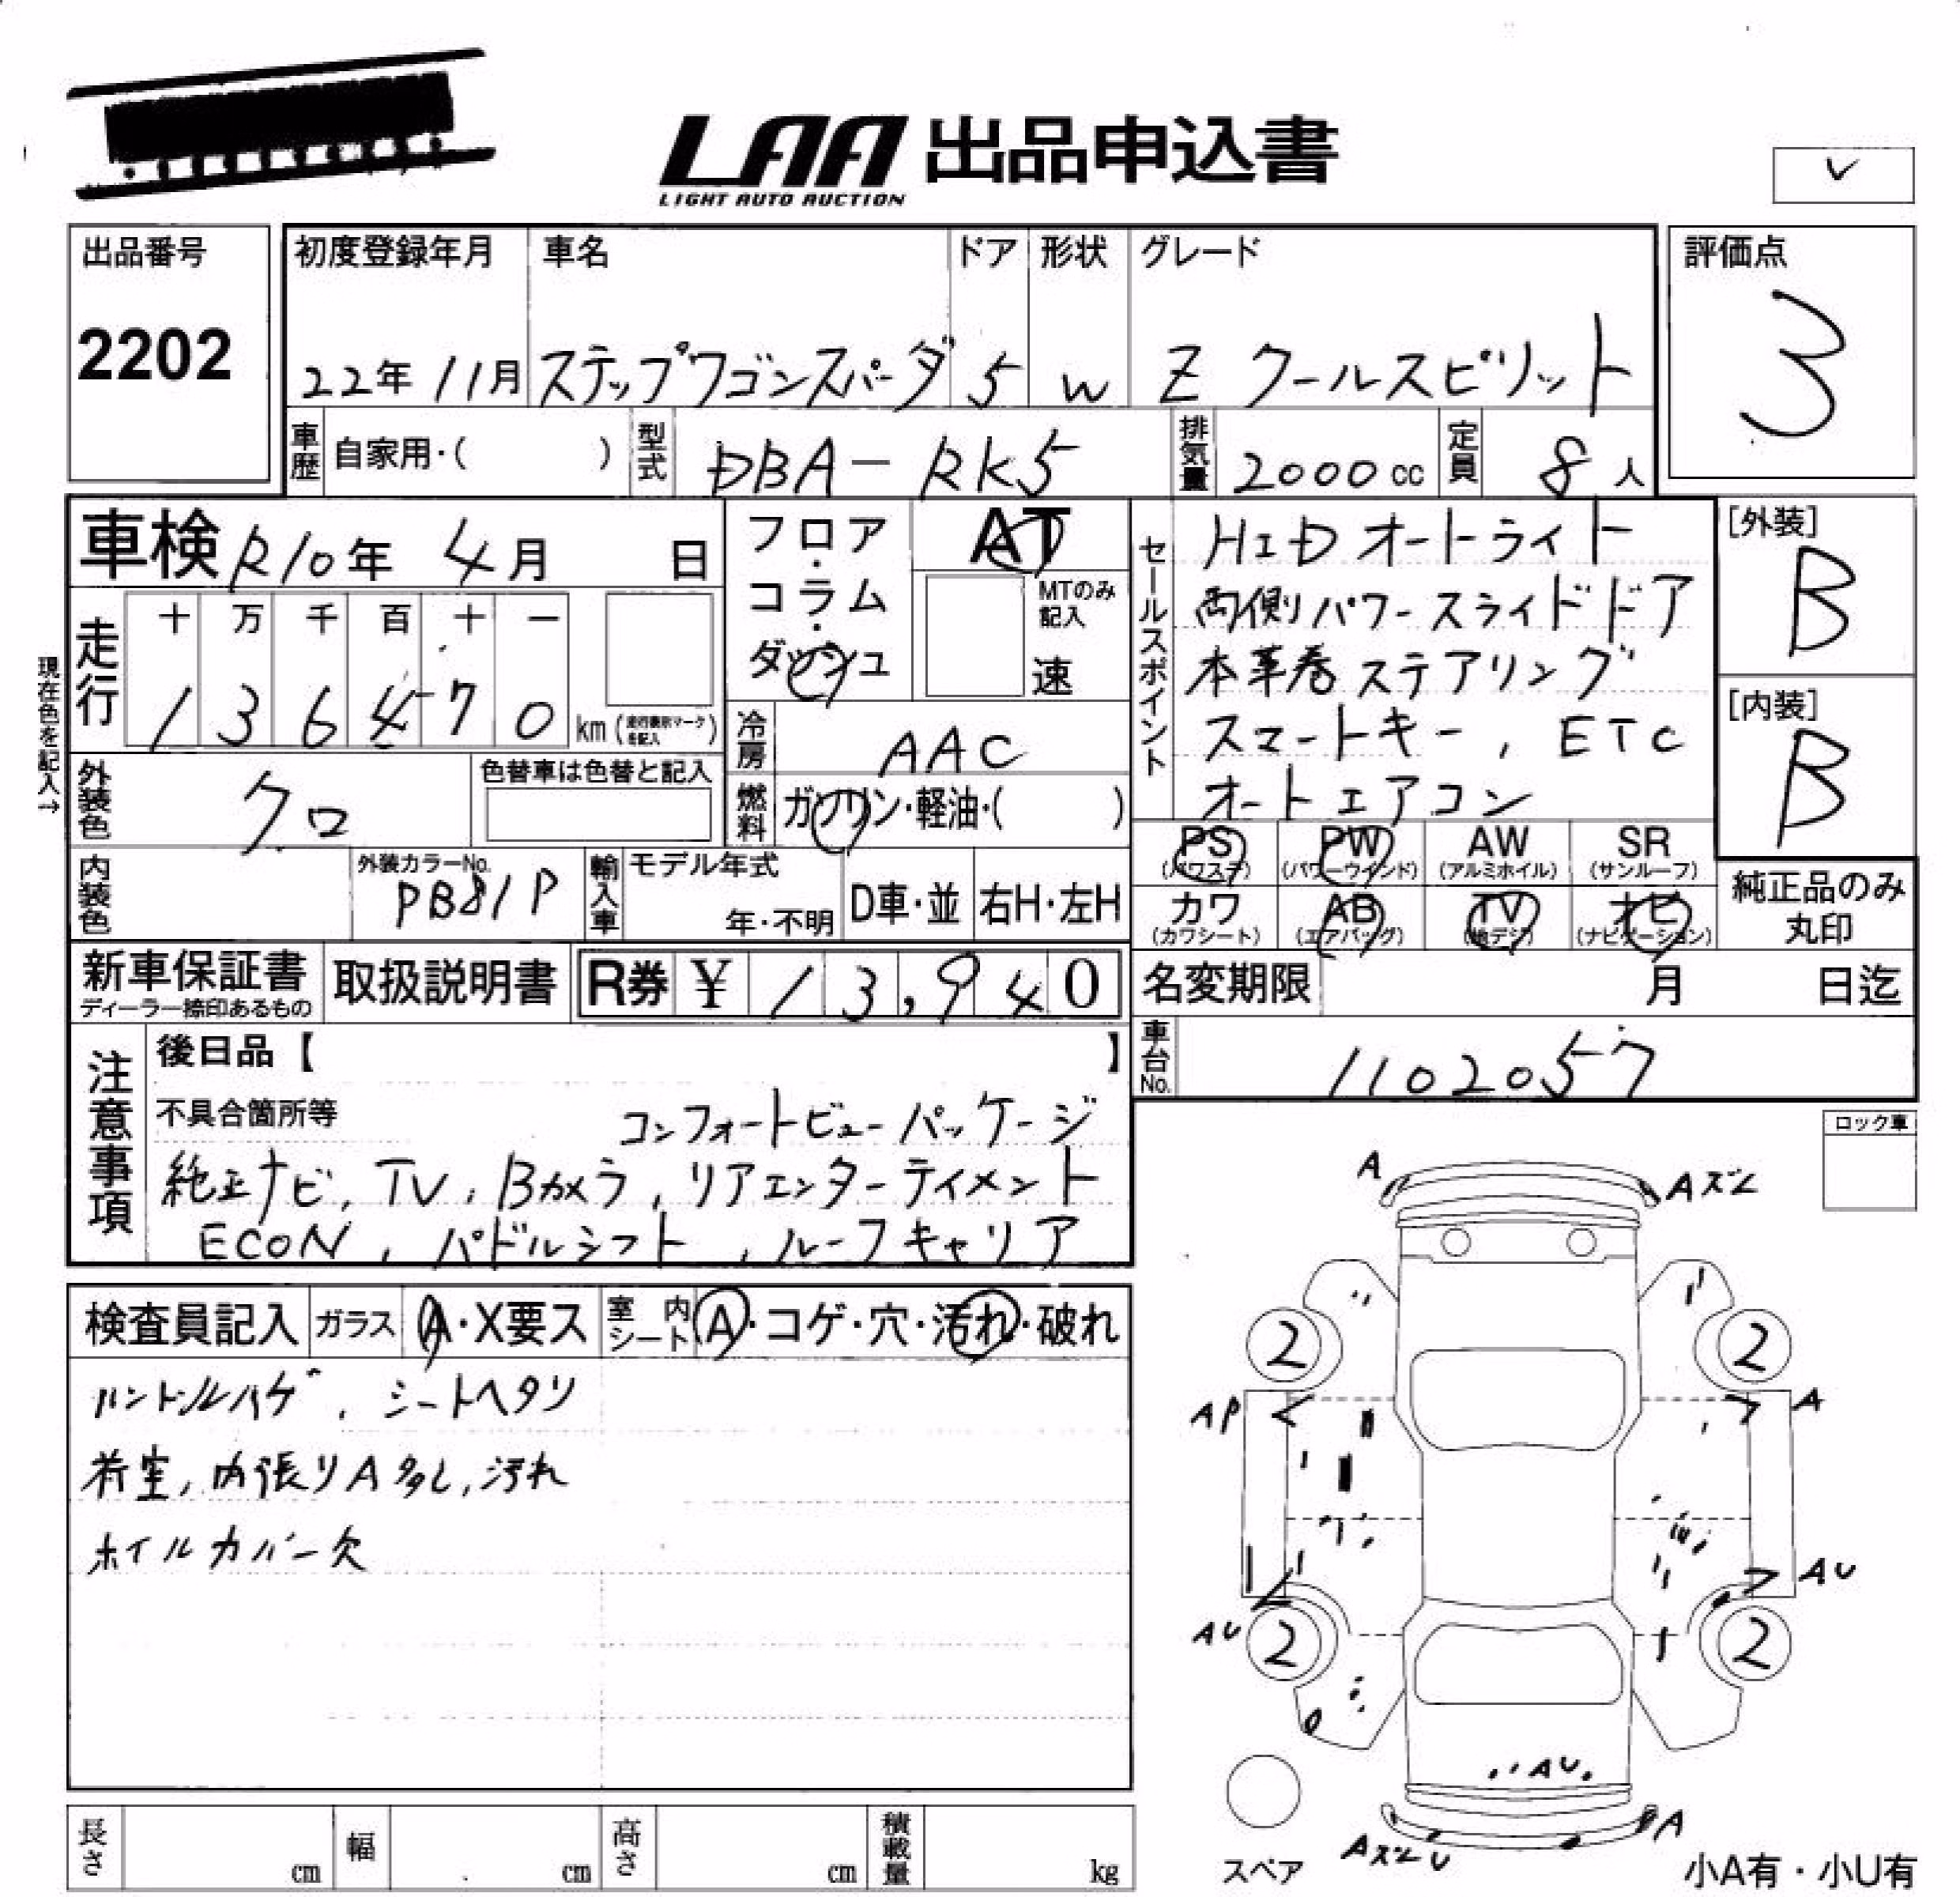 LAA 出品申込書
LIGHT AUTO AUCTION
出品番号
2202
初度登録年月
22年 11月
車名
ステップワゴンスパーダ
ドア
5
形状
W
グレード
Z クールスピリット
評価点
3
車歴 自家用・( )
型式 DBA-RK5
排気量 2000cc
定員 8人
車検 R10年 4月 日
走行 十 万 千 百 十 一
1 3 6 4 7 0 km
現在色を記入→
外装色 クロ
色替車は色替と記入
内装色
外装カラーNo.
PB81P
フロア・コラム・ダッシュ
AT
MTのみ記入
速
冷房 AAC
燃料 ガソリン・軽油・( )
輸入車 モデル年式
年・不明
D車・並
右H・左H
セールスポイント
HID オートライト
両側パワースライドドア
本革巻ステアリング
スマートキー, ETC
オートエアコン
[外装]
B
[内装]
B
PS (パワステ)
PW (パワーウインド)
AW (アルミホイル)
SR (サンルーフ)
カワ (カワシート)
AB (エアバッグ)
TV (地デジ)
ナビ (ナビゲーション)
純正品のみ
丸印
新車保証書
ディーラー捺印あるもの
取扱説明書
R券 ¥ 13,940
名変期限 月 日迄
車台No. 1102057
注意事項
後日品【 】
不具合箇所等 コンフォートビューパッケージ
純正ナビ, TV, Bカメラ, リアエンターティメント
ECON, パドルシフト, ルーフキャリア
検査員記入
ガラス A・X要ス
室内シート A・コゲ・穴・汚れ・破れ
ハンドルハゲ, シートヘタリ
荷室, 内張りA多し, 汚れ
ホイルカバー欠
ロック車
A
Aズレ
2
2
AP
A
AU
AU
2
2
AU
Aズレ U
A
スペア
小A有・小U有
長さ cm
幅 cm
高さ cm
積載量 kg